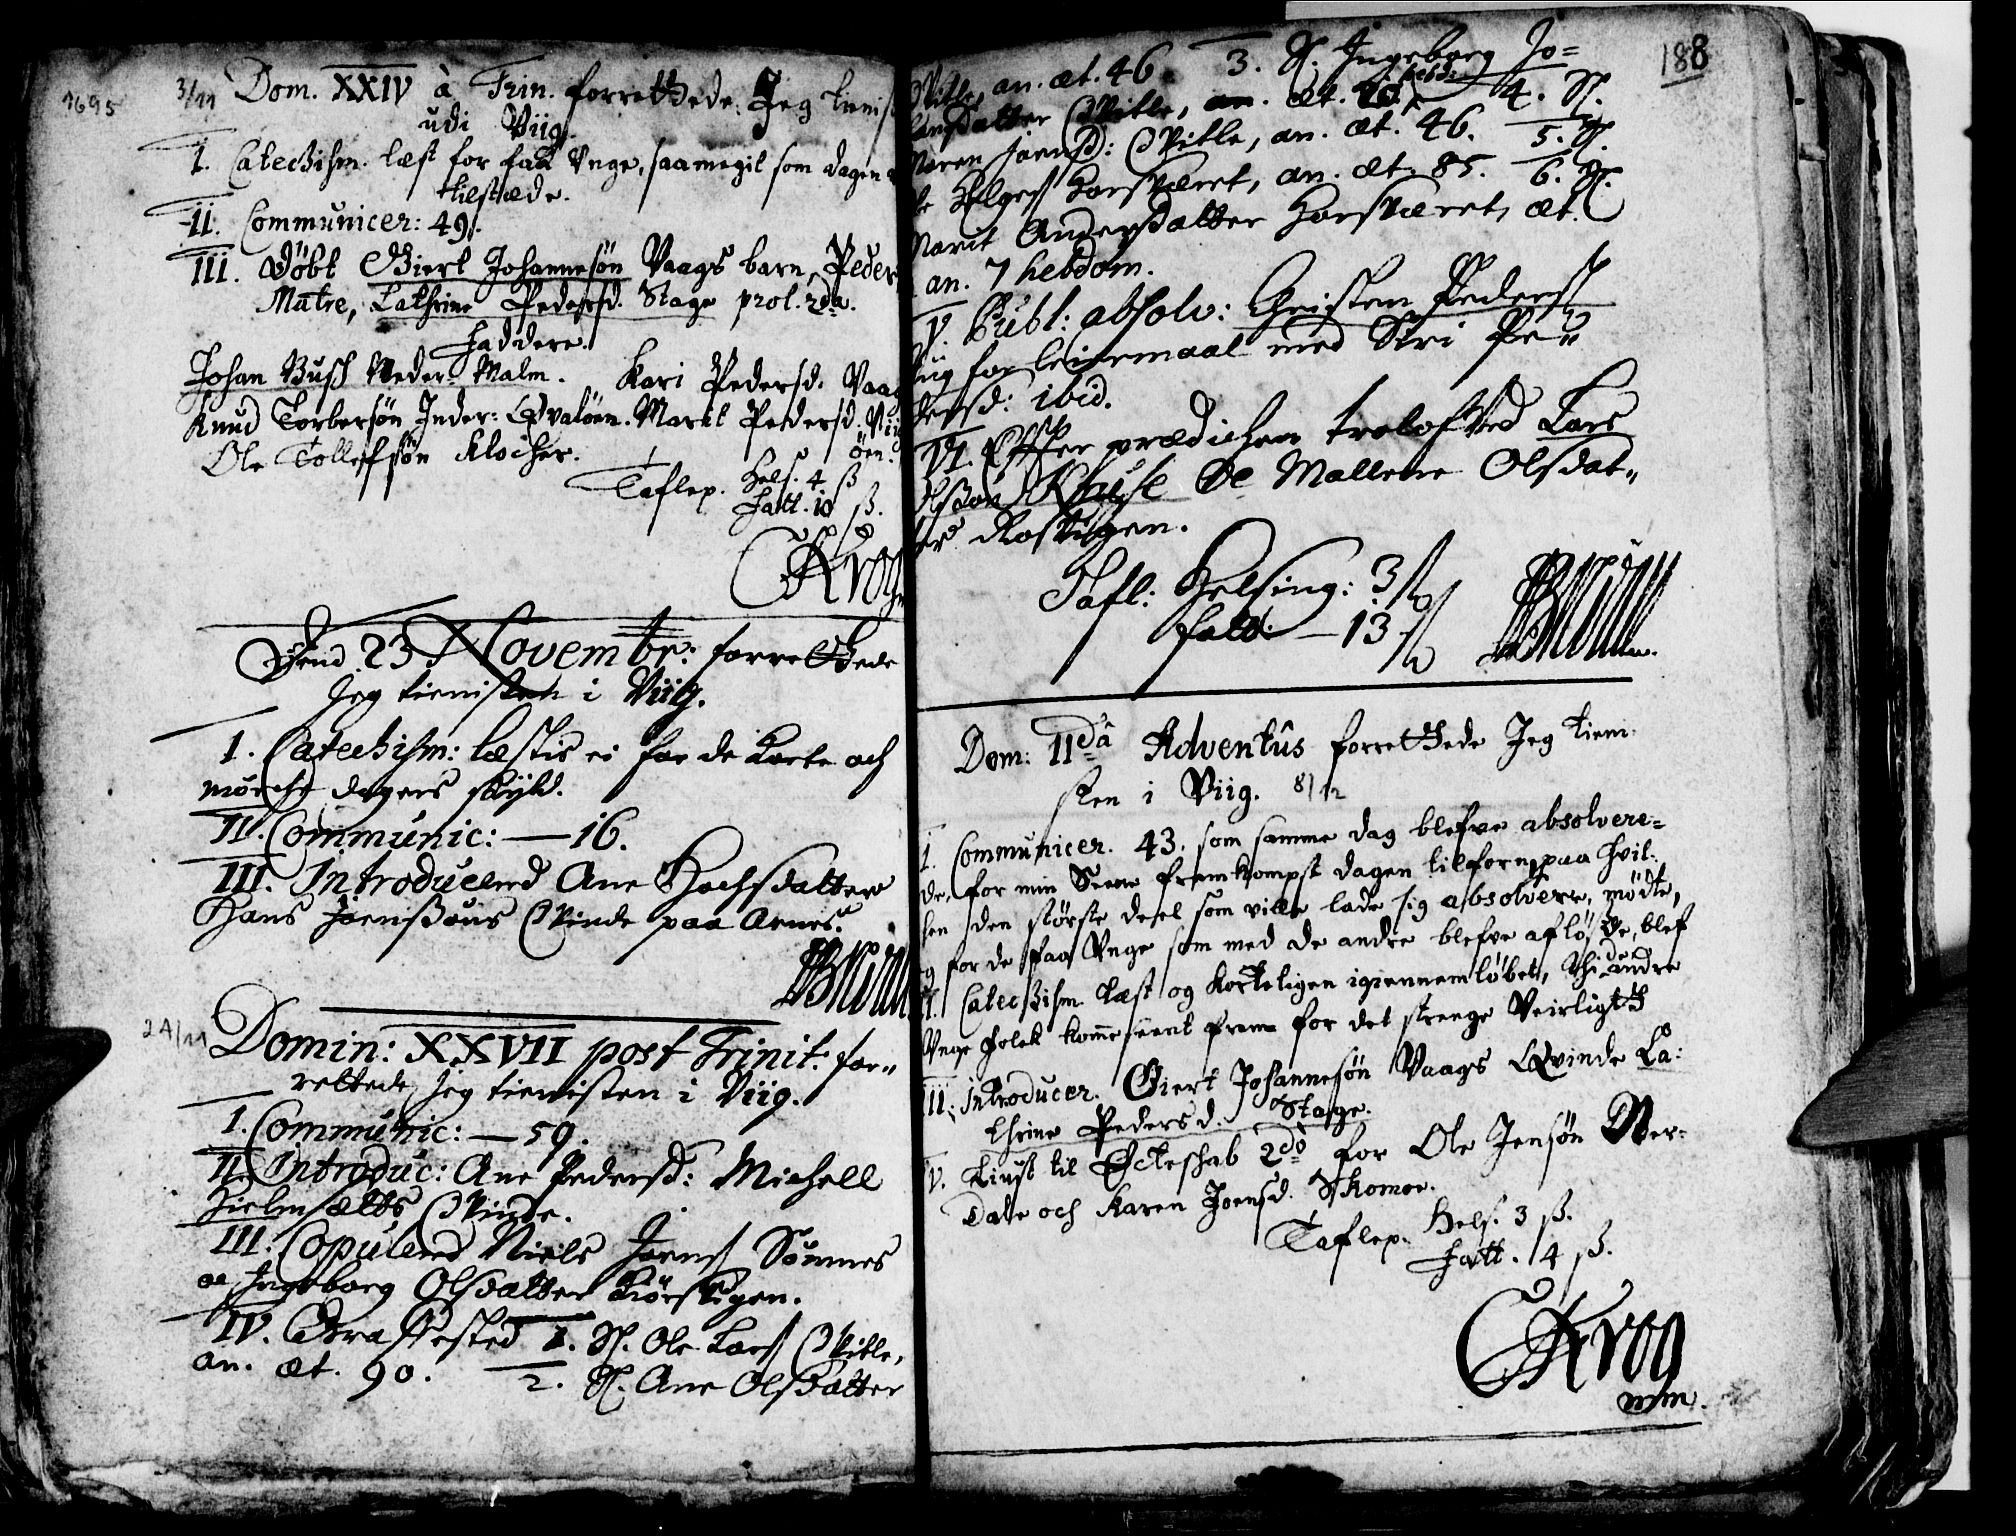 1695
3/11 Dom. XXIV à Trin. forrettede Jeg tienist
udi Viig.
I. Catechism. læst for faa Unge, saamegit som dagen
tilstæde.
II. Communicer: 49.
III. Døbt Giert Johannesøn Vaags barn, Peder
Matre, Cathrine Pedersd. Stage prol. 2da.
Faddere.
Johan Busch Neder Malm. Kari Pedersd. Vaag
Knud Torbersøn Inder: Qvaløen. Marit Pedersd. Vii
Ole Tollefsøn Klocher. öen.
Taflep. Hels. 4 ß
Fatt. 10 ß.
CKrog
Dend 23 Novembr: forrettede
jeg tienisten i Viig.
I. Catechism: læstis ei for de korte och
mørche dagers skyld.
II. Communic: — 16.
III. Introducerd Ane Hochsdatter
Hans Joenssøns Qvinde paa Arnes.
24/11 Domin: XXVII post Trinit: for-
rettede jeg tienisten i Viig.
I. Communic: — 59.
II. Introduc: Ane Pedersd: Michell
Hielmsæths Qvinde.
III. Copulerd Niels Joens Sømnes
oc Ingeborg Olsdatter Kiørstigen.
IV. Graffested 1. Sl. Ole Lars Qvitle,
an. æt. 90. 2. Sl. Ane Olsdatter
188
Qvitle, an. æt. 46. 3. Sl. Ingeborg Jo=
hansdatter Qvitle, æt. 20 hebd: 4. Sl.
Maren Joensd: Qvitle, an. æt. 46. 5. Sl.
Helges Horsværet, an. æt. 85. 6. Sl.
Marit Andersdatter Horsværet, æt.
an. 7 hebdom.
V. Publ: absolv: Christen Peders
for leiermaal med Siri Pe-
dersd: ibid.
VI. Efter prædichen troloffved Lars
Olssøn Kause oc Mallene Olsdat-
er Rosstigen.
Tafl: Helsing: 3 ß
Fatt: — 13 ß
Dom: IIda Adventûs forrettede Jeg tieni-
sten i Viig. 8/12
I. Communicer. 43. som samme dag blefve absolvere=
de, for min Seene fremkompst dagen tilforn, paa hvil-
ken den største deel som ville lade sig absolvere, mødte,
og for de faa Unge som med de andre blefve afløste, blef
II. Catechism læst og korteligen igiennemløbet, thi de andre
Unge folck komme seent frem for det strenge Veirligt
III. Introducer. Giert Johannesøn Vaags Qvinde Ca-
thrine Pedersd. Stage.
V. Liust til Ecteskab 2do for Ole Jensøn Ner-
Dale och Karen Joensd. Skomoe.
Taflep. Hels. 3 ß.
Fatt. 4 ß.
CKrog
mm.